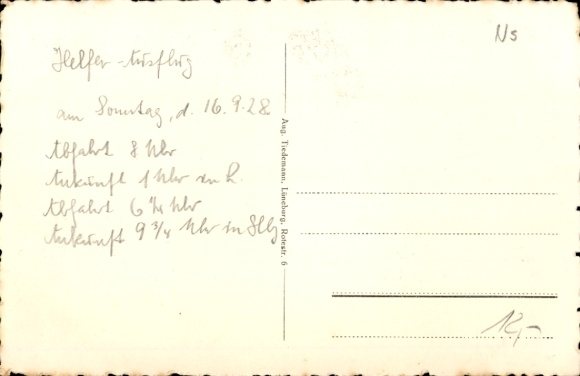 Ns
Helfer-Ausflug
am Sonntag, d. 16.9.28
Abfahrt 8 Uhr
Ankunft 1 Uhr in L.
Abfahrt 6 ¼ Uhr
Ankunft 9 ¾ Uhr in
Aug. Tiedemann, Lüneburg, Rotestr. 6
12,-